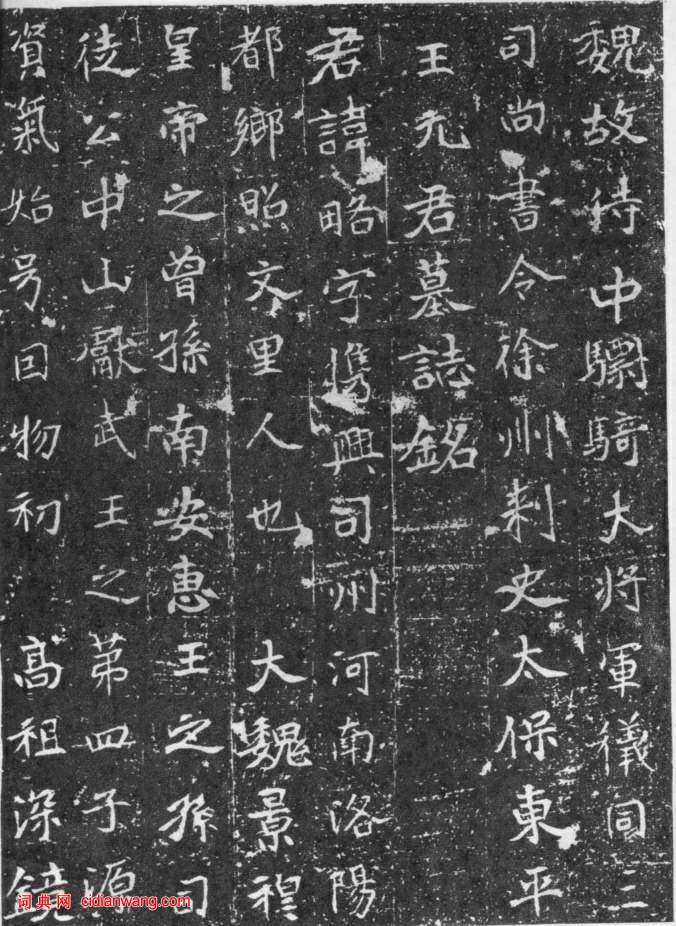 魏故侍中驃騎大將軍儀同三
司尚書令徐州刺史太保東平
王元君墓誌銘
君諱略字㑺興司州河南洛陽
都鄉照文里人也　大魏景穆
皇帝之曾孫南安惠王之孫司
徒公中山獻武王之第四子源
資氣始号因物初　高祖深鏡
词典网 cidianwang.com